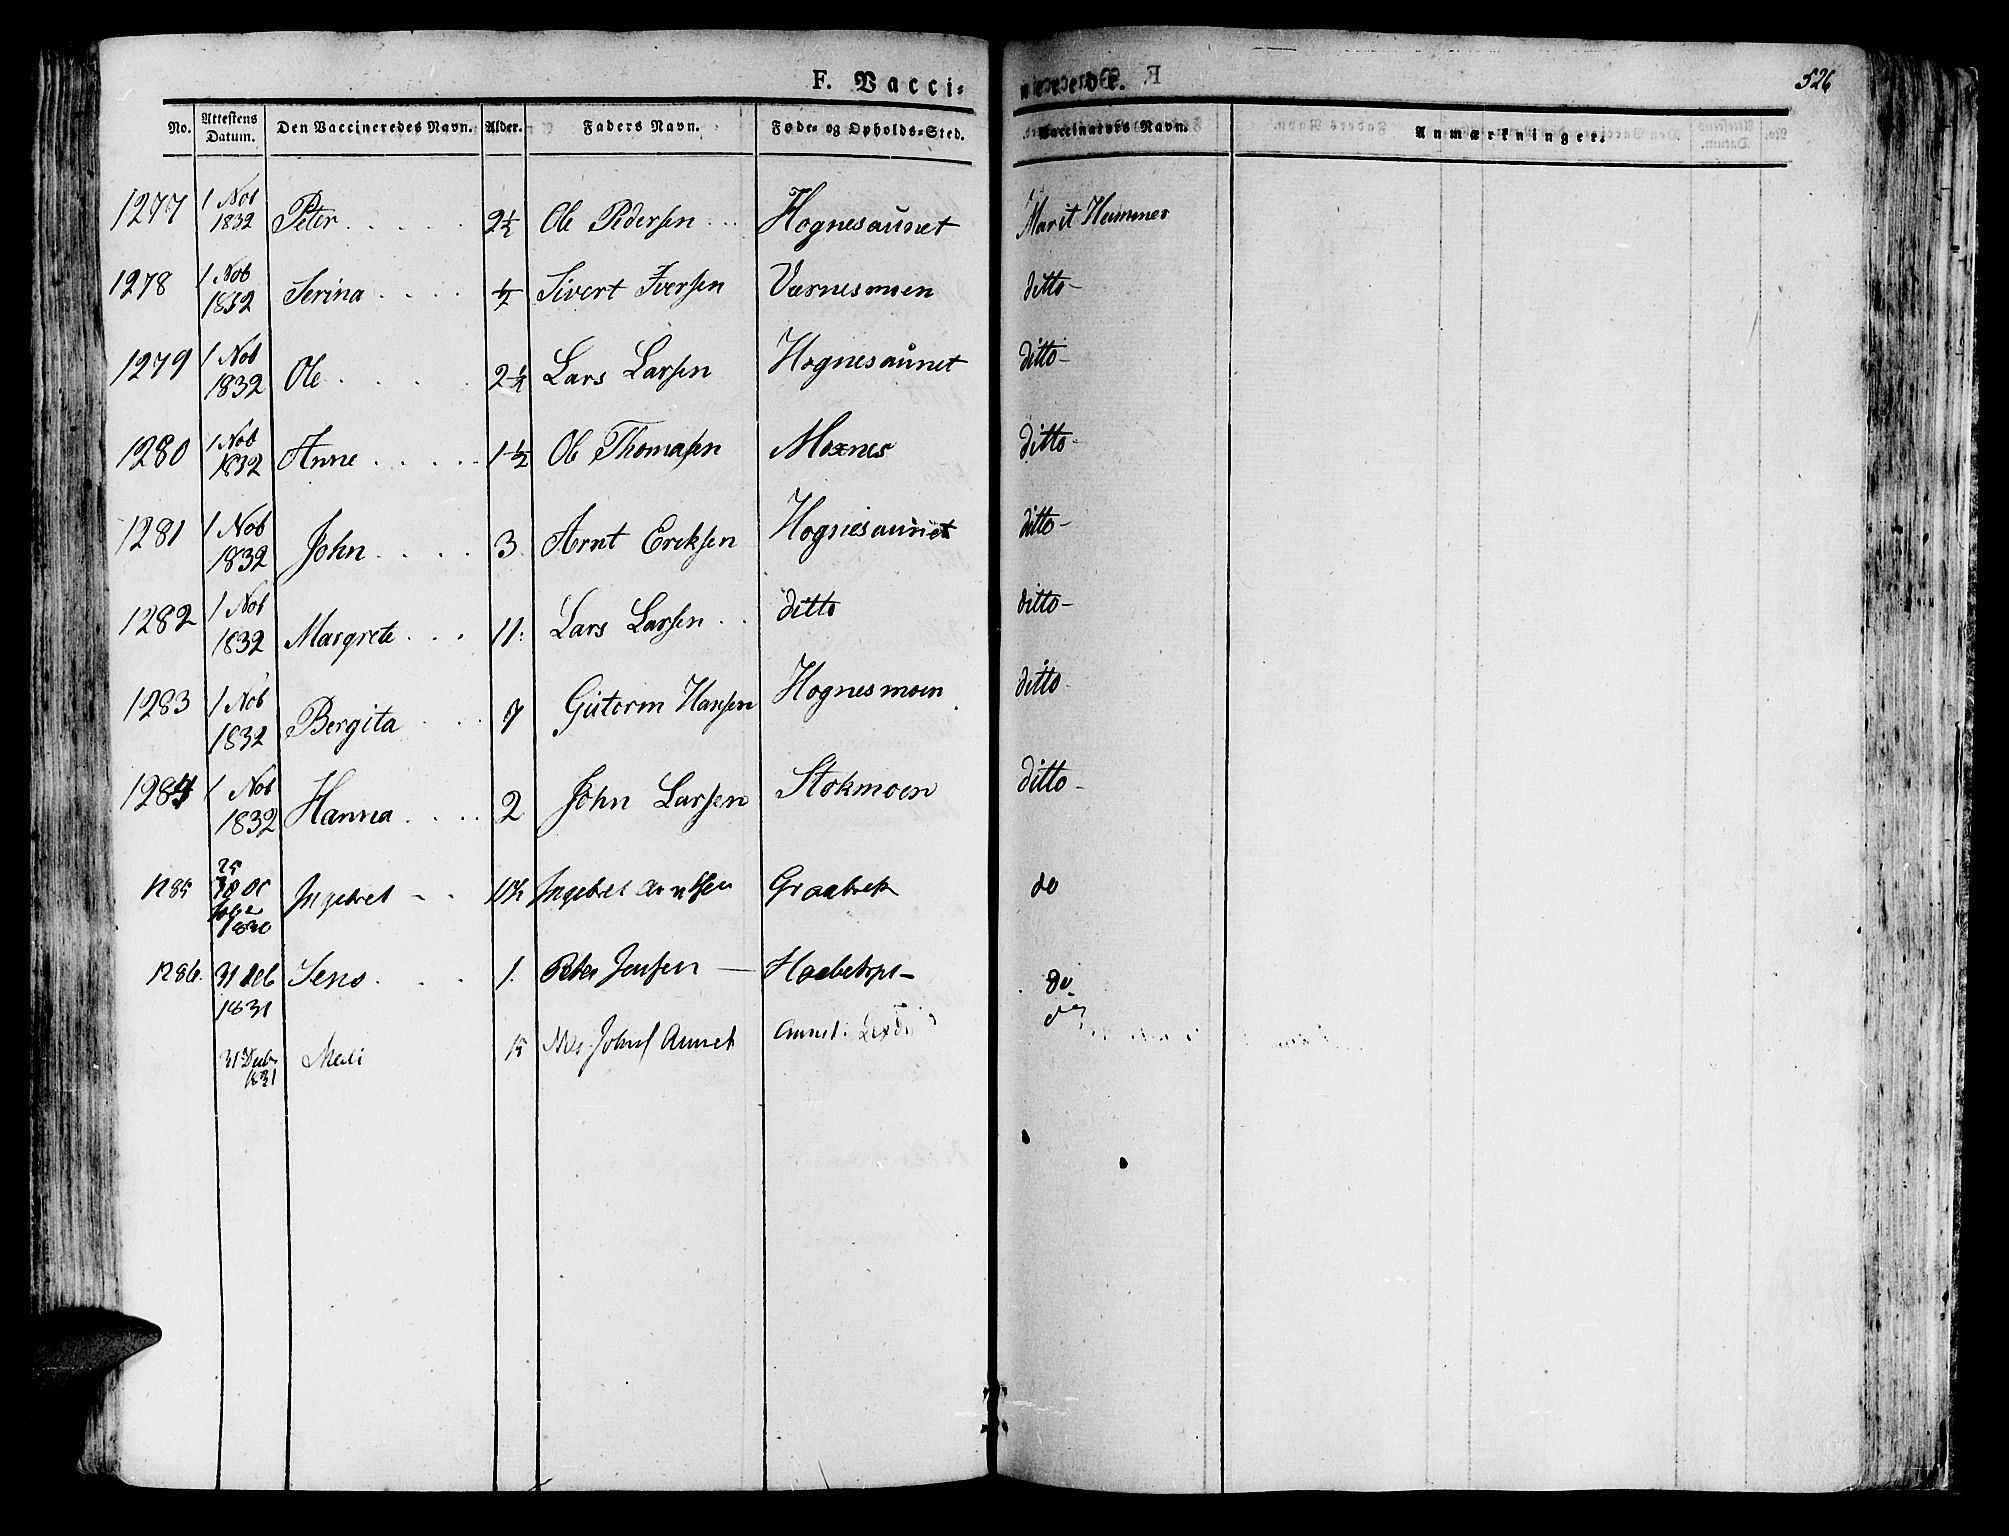 F. Vacci-
nerede.
526
No. Attestens Datum. Den Vaccineredes Navn. Alder. Faders Navn. Føde- og Opholds-Sted. Vaccinateurs Navn. Anmærkninger.
1277 1 Nob 1832 Peter 2½ Ole Pedersen Hognesaunet Marit Hammer
1278 1 Nob 1832 Serina ½ Sivert Iversen Værnesmoen ditto
1279 1 Nob 1832 Ole 2¼ Lars Larsen Hognesaunet ditto
1280 1 Nob 1832 Anne 1½ Ole Thomasen Moxnes ditto
1281 1 Nob 1832 John 3 Arnt Ericksen Hognesaunet ditto
1282 1 Nob 1832 Margrete 11 Lars Larsen ditto ditto
1283 1 Nob 1832 Bergita 7 Gutorm Hansen Hognesmoen ditto
1284 1 Nob 1832 Hanna 2 John Larsen Stokmoen ditto
1285 25 1830 Ingebret Ingebret Arntsen Graabrek do
1286 31 1831 Jens 1 Peter Jensen do
31 Decbr 1831 15 Nils Johns Aunet Aunet do